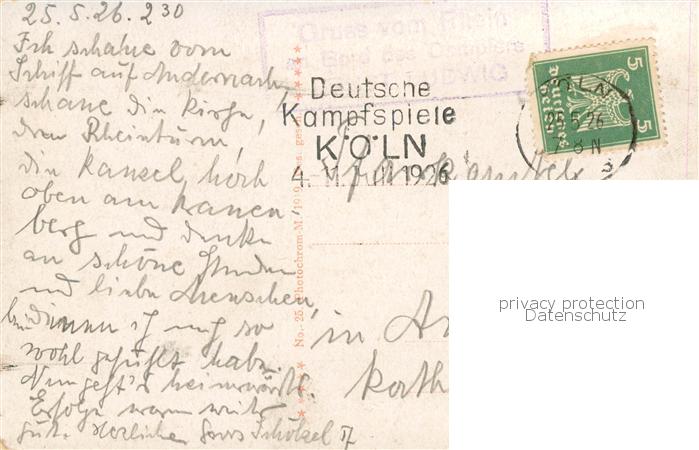 25.5.26. 2 30
Ich schaue vom
Schiff auf Andernach,
schaue die Kirche,
den Rheinturm,
die Kanzel hoch
oben am Kranen-
berg und denke
an schöne Stunden
und liebe Menschen,
bei denen ich mich so
wohl gefühlt habe.
Nun geht's heimwärts.
Erfolge waren weiter
gut. Herzlichen Gruss
Gruss vom Rhein
an Bord des Dampfers
LUDWIG
Deutsche
Kampfspiele
KÖLN
4. M. Juli 1926
KÖLN
25.5.26
7-8 N
5
5
Deutsches Reich
No. 25. Photochrom-M. 1919. Ges. gesch.
in An
Kath
privacy protection
Datenschutz